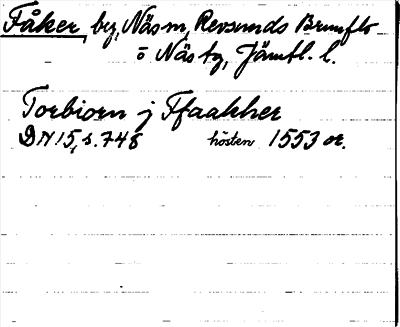 Fåker, by, Näs sn, Revsunds Brunflo
o Näs tg, Jämtl. l.
Torbiorn j Ffaakher
DN 15, s. 748 hösten 1553 or.